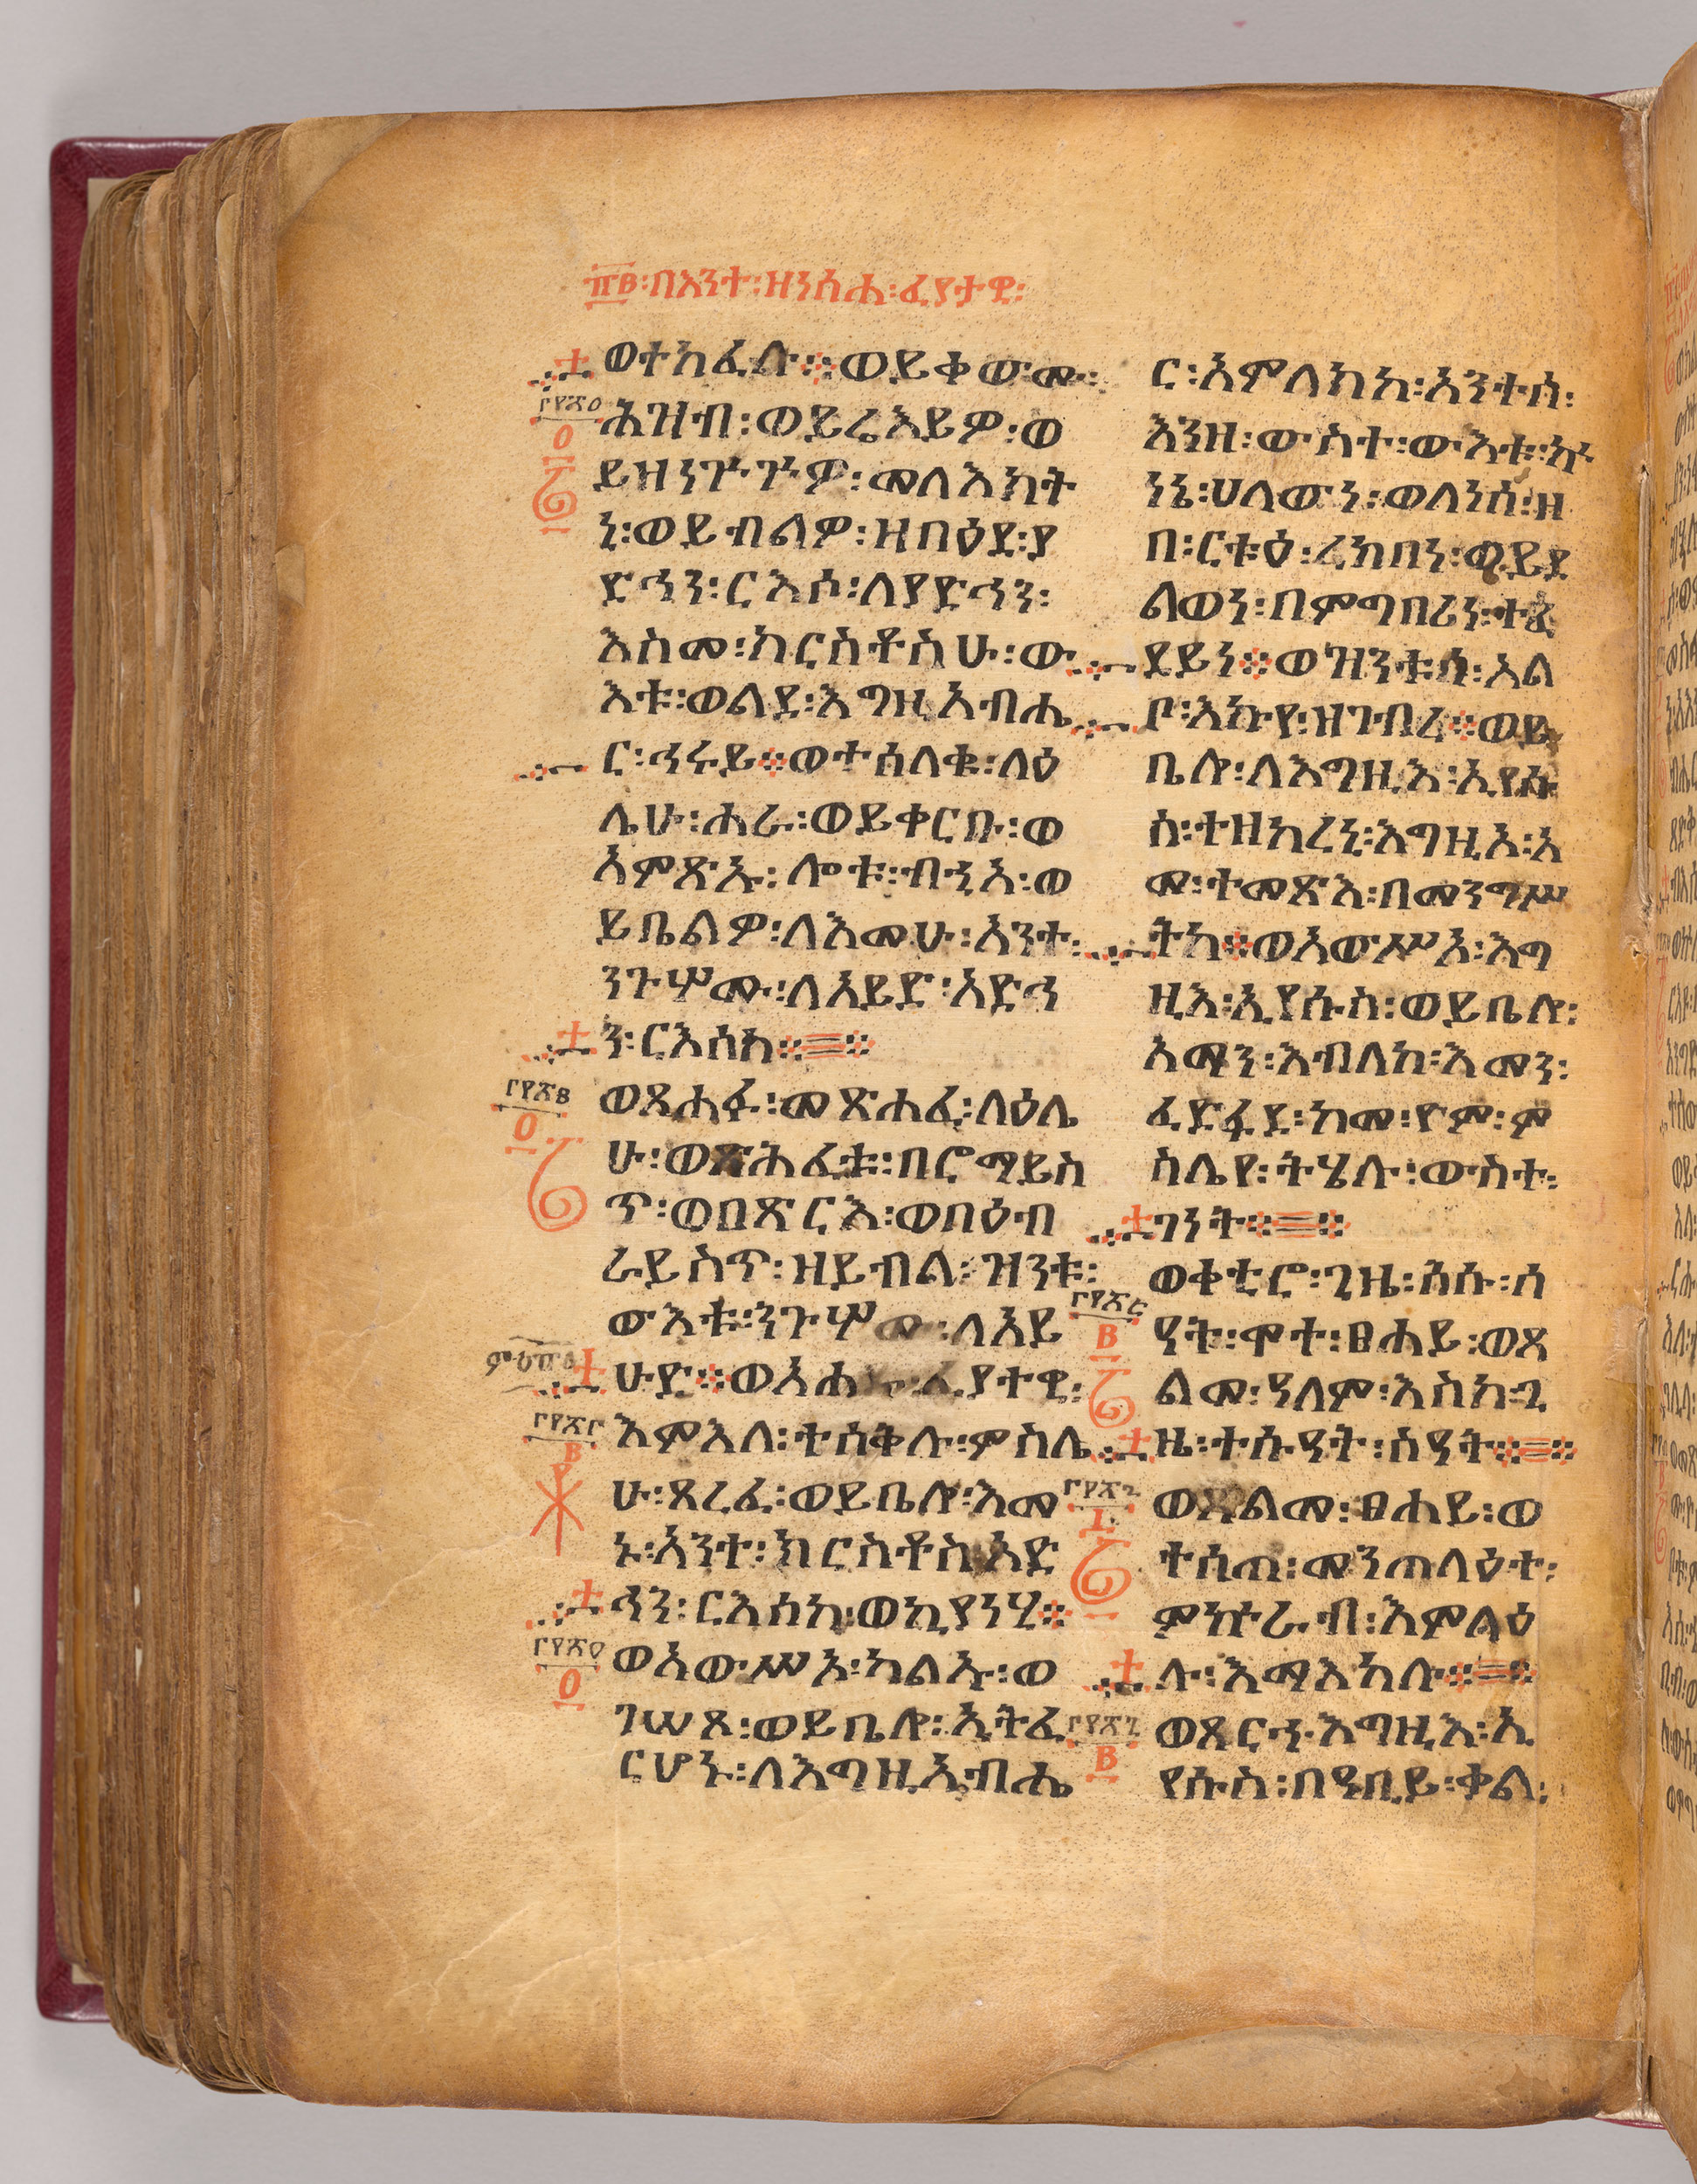 ፹፪፡በእንተ፡ዘነስሐ፡ፈያታዊ፡
ወተከፈሉ፨ወይቀውሙ፡
ሕዝብ፡ወይሬእይዎ፡ወ
ይዝነጕጕዎ፡መለእክት
ኒ፡ወይብልዎ፡ዘበዕደ፡ያ
ድኅን፡ርእሶ፡ለያድኅን፡
እስመ፡ክርስቶስሁ፡ው
እቱ፡ወልደ፡እግዚአብሔ
ር፡ኅሩይ፨ወተሰለቁ፡ላዕ
ሌሁ፡ሐራ፡ወይቀርቡ፡ወ
አምጽኡ፡ሎቱ፡ብኂአ፡ወ
ይቤልዎ፡ለእመሁ፡አንተ፡
ንጉሦሙ፡ለአይድ፡አድኅ
ን፡ርእሰከ፨
ወጸሐፉ፡መጽሐፈ፡ላዕሌ
ሁ፡ወጽሕፈቱ፡በሮማይስ
ጥ፡ወበጽርእ፡ወበዕብ
ራይስጥ፡ዘይብል፡ዝንቱ፡
ውእቱ፡ንጉሦሙ፡ለአይ
ሁድ፨ፈያተዊ፡
እምእለ፡ተሰቅሉ፡ምስሌ
ሁ፡ጸረፈ፡ወይቤሎ፡እመ
ኑ፡አንተ፡ክርስቶስ፡አድ
ኅን፡ርእሰከ፡ወኪያነሂ፨
ወአውሥአ፡ካልኡ፡ወ
ገሠጾ፡ወይቤሎ፡ኢትፈ
ርሆኑ፡ለእግዚአብሔ
ር፡አምላክከ፡አንተሰ፡
እንዘ፡ውስተ፡ውእቱ፡ኵ
ነኔ፡ሀላውን፡ወለነሰ፡ዘ
በ፡ርቱዕ፡ረከበነ፡ወይደ
ልወነ፡በምግባሪነ፡ተፈ
ደይነ፨ወዝንቱሰ፡አል
ቦ፡እኩየ፡ዝገብረ፨ወይ
ቤሎ፡ለእግዚእ፡ኢየሱ
ስ፡ተዘከረኒ፡እግዚኦ፡አ
መ፡ተመጽእ፡በመንግሥ
ትከ፨ወአውሥአ፡እግ
ዚእ፡ኢየሱስ፡ወይቤሎ፡
አማን፡እብለከ፡እመን፡
ፈድፋደ፡ከመ፡ዮም፡ም
ስሌየ፡ትሄሉ፡ውስተ፡
ገነት፨
ወቀቲሮ፡ጊዜ፡ስሱ፡ሰ
ዓት፡ሞተ፡ፀሐይ፡ወጸ
ልመ፡ዓለም፡እስከ፡ጊ
ዜ፡ተሱዓት፡ሰዓት፨
ወጸልመ፡ፀሐይ፡ወ
ተሰጠ፡መንጠላዕተ፡
ምኵራብ፡እምላዕ
ሉ፡እማእከሉ፨
ወጸርኀ፡እግዚእ፡ኢ
የሱስ፡በዓቢይ፡ቃል፡